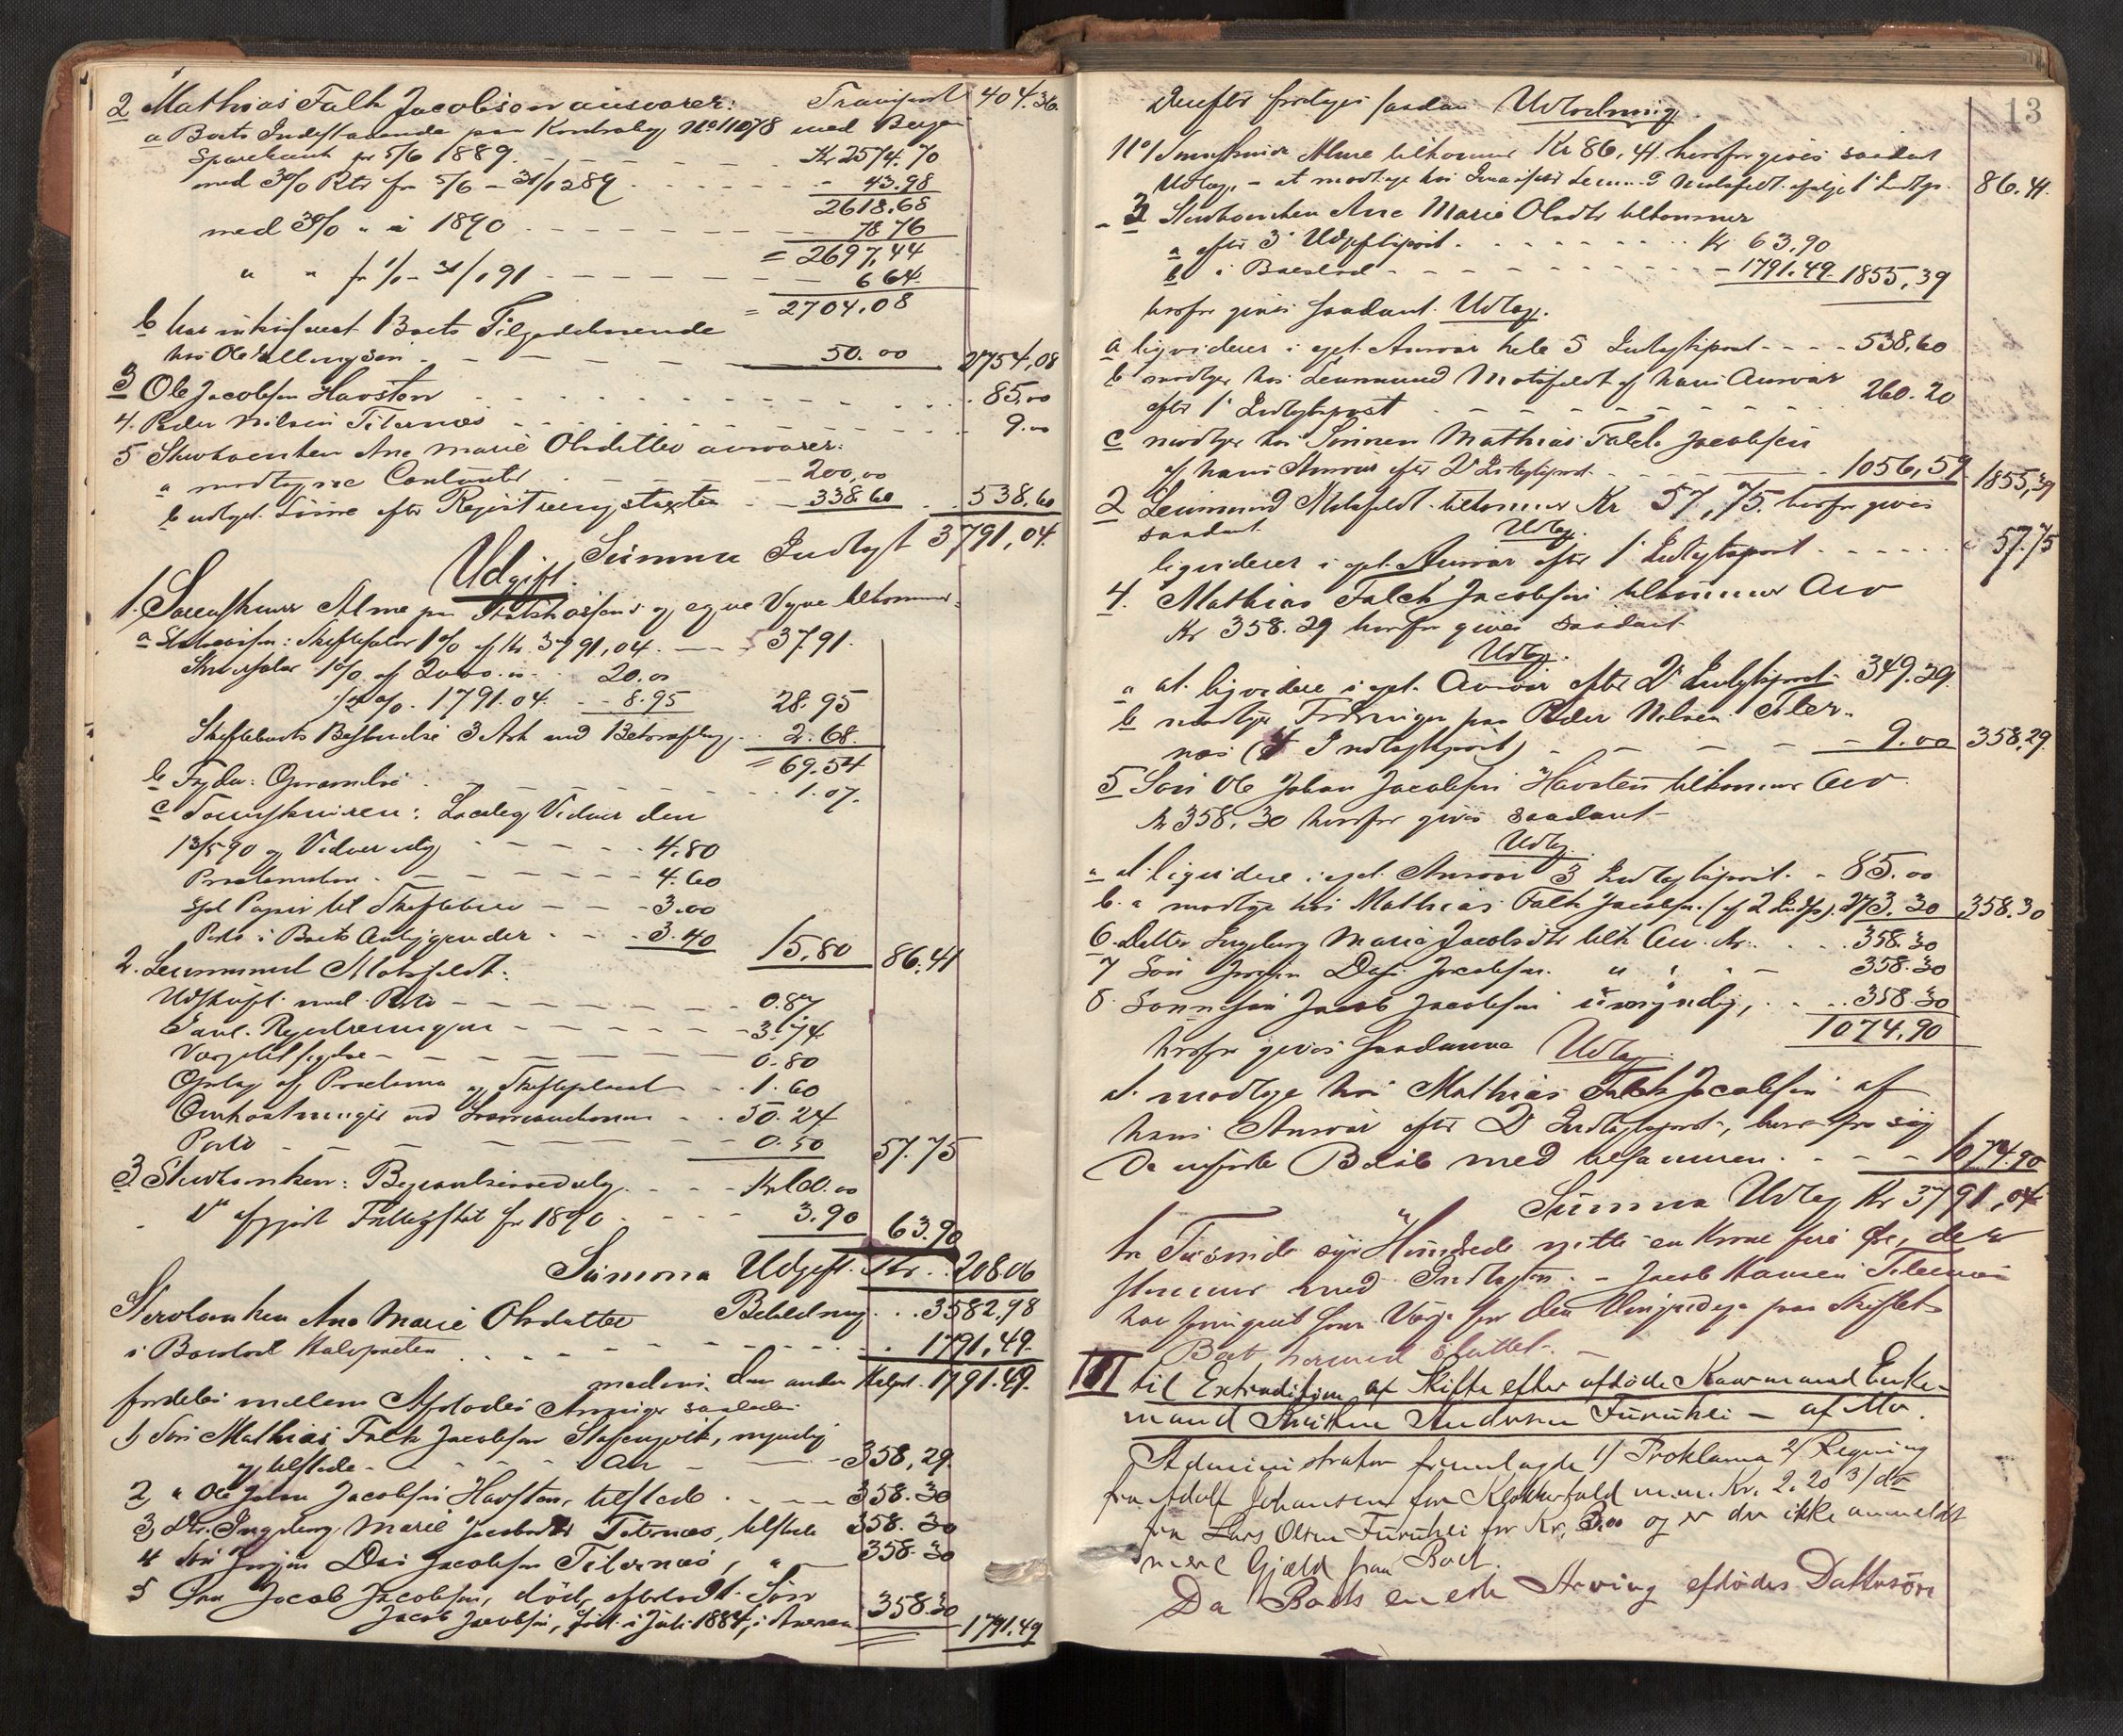 2 Mathias Falk Jacobsen ansvarer: Transport 404.36
a Boets Indestaaende paa Kontrabog No 11078 med Bergens
Sparebank pr 5/6 1889. Kr 2574.70
med 3% Rtr fra 5/6 - 31/1289 43.98
2618.68
med 3% " i 1890 78 76
= 2697,44
" " fr 1/1 - 31/1 91 6 64
= 2704.08
b har inkasseret Boets Tilgodehavende
hos Ole Ellingsen 50.00 2754,08
3 Ole Jacobsen Havsten 85.00
4. Peder Nilsen Titernæs 9.00
5 Stervboenken Ane Marie Olsdatter ansvarer:
a modtagne Contanter 200,00
b udlagt Løsøre efter Registreringstaxten 338 60 538.60
Summa Indtægt 3791,04.
Udgift.
1. Sorenskriver Alme paa Statskassens og egne Vegne tilkommer:
a Statskassen: Skiftesalær 1% af Kr. 3791,04. 37.91.
Skriversalær 1% af 2000.00 20.00
1/2 % 1791.04. 8.95 28.95
Skiftebrevets Beskrivelse 3 Ark med Bekræftelse 2.68.
= 69.54
b Fogden: Opsendelse 1.07.
c Sorenskriveren: Indlæg Vidner den
13/5 90 og Vidner udlg 4.80
Proclamation 4.60
Spl Papir til Skiftebrev 3.00
Porto i Boets Anliggender 3.40 15.80 86.41
2. Lensmand Motzfeldt:
Udskrift med Porto 0.87
Saml. Registreringen 3.74
Værgetilsigelse 0.80
Opslag af Proclama og Skifteplacat 1.60
Omkostninger ved Incaminationen 50.24
Porto 0.50 57.75
3 Stervboenken: Begravelsesudlæg Kr 60.00
Do afgjort Fattigskat for 1890 3.90 63.90
Summa Udgift Kr. 208.06
Beholdning 3582.98
Stervboenken Ane Marie Olsdatter
i Boeslod Halvparten 1791,49.
medens den anden Halvpt. 1791.49.
fordeles mellem Afdødes Arvinger saaledes
1) Søn Mathias Falk Jacobsen Stafsengvik, myndig
og tilstede Arv 358,29.
2, " Ole Johan Jacobsen Havsten, tilstede 358.30
3, Dtr. Ingeborg Marie Jacobsdtr Titernæs, tilstede 358.30
4 Søn Jørgen Dass Jacobsen Titernæs, " 358.30
5 Søn Jacob Jacobsen, død, efterladt Søn
Jacob Jacobsen, født i Juli 1884, i Amerika 358.30 1791.49
13
Derefter foretoges saadan Udlodning
No 1 Sorenskriver Alme tilkommer Kr 86.41. herfor gives saadant
Udlæg. - at modtage hos Lensmand Motzfeldt ifølge 1 Indtgp. 86.41.
- 3 Stervboenken Ane Marie Olsdtr tilkommer
a efter 3 Udgiftspost Kr 63.90
b i Boeslod 1791.49 1855,39
herfor gives saadant Udlæg.
a liqviderer i eget Ansvar hele 5 Indtægtspost 538.60
b modtager hos Lensmand Motzfeldt af hans Ansvar
efter 1 Indtægtspost 260.20
c modtger hos Sønnen Mathias Falk Jacobsen
af hans Ansvar efter 2 Indtægtspost 1056,59 1855,39
2 Lensmand Motzfeldt tilkommer Kr 57,75. herfor gives
saadant Udlæg
liqviderer i eget Ansvar efter 1 Indtægtspost 57.75
4. Mathias Falck Jacobsen tilkommer Arv
Kr 358.29 herfor gives saadant
Udlæg.
a at liqvidere i eget Ansvar efter 2 Indtægtspost 349.29.
b modtage Fordringen paa Peder Nilsen Titer-
næs (4 Indtægtspost) 9.00 358,29.
5 Søn Ole Johan Jacobsen Havsten tilkommer Arv
Kr 358.30 herfor gives saadant
Udlæg.
a at liqvidere i eget Ansvar 3 Indtægtspost 85.00
b. a modtage hos Mathias Falk Jacobsen (af 2 Indtp). 273.30 358.30
6. Datter Ingeborg Maria Jacobsdtr tilk Arv Kr. 358.30
7 Søn Jørgen Dass Jacobsen " " 358.30
8. Sønnesøn Jacob Jacobsen umyndig, 358.30
1074.90
herfor gives saadanne Udlæg
at modtage hos Mathias Falck Jacobsen af
hans Ansvar efter 2 Indtægtspost, hver for sig
de anførte Beløb med tilsammen 1074.90
Summa Udlæg Kr 3791,04
tre Tusinde syv Hundrede nitti en Krone fire Øre, der
stemmer med Indtægten. - Jacob Hansen Titernæs
har fungeret som Værge for den Umyndige paa Skiftet
Boet hermed sluttet. -
III til Extradition af Skifte efter afdøde Kaarmand Enke-
mand Andersen Furuhei - af Mo.
Administrator fremlagde 1) Proklama 2) Regning
fra Adolf Johansen for Klokkerhold m.m. Kr. 2.20 3) do
fra Lars Olsen Furuhei for Kr. 3.00 og er der ikke anmeldt
mere Gjæld fraa Boet.
Da Boets eneste Arving afdødes Dattersøn